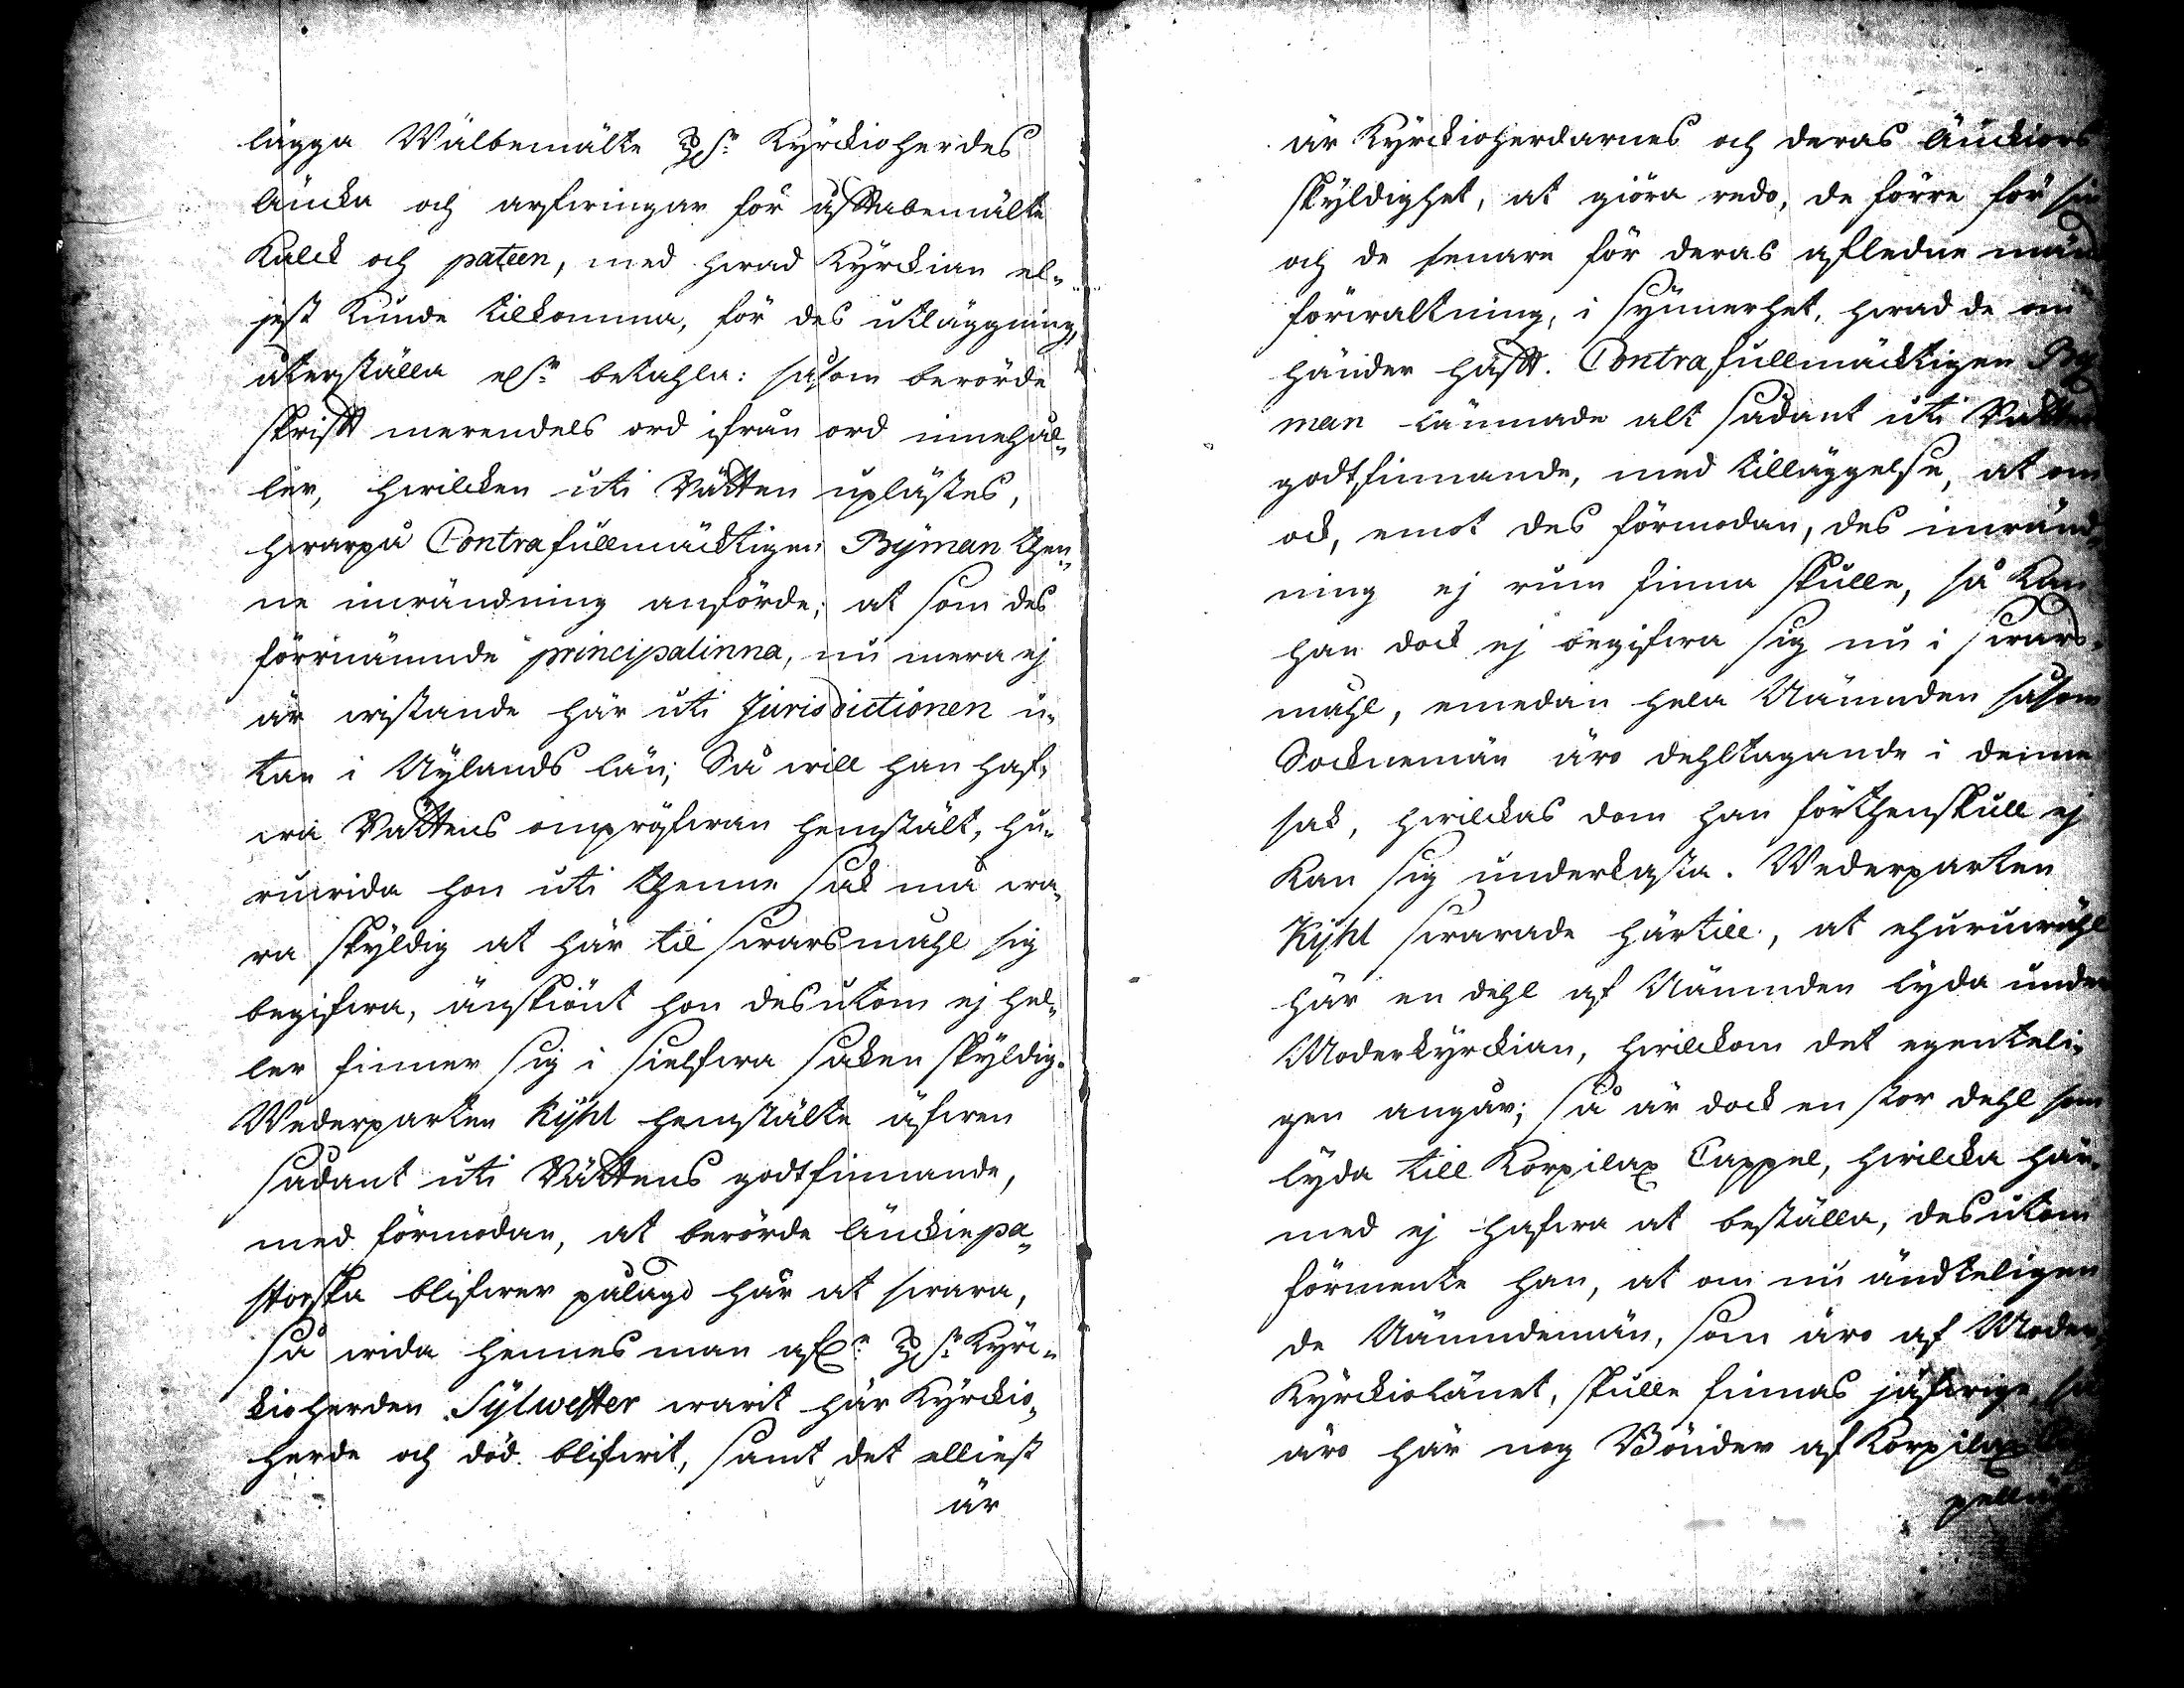 lägga Wälbemälte H:r Kyrckioherdes
äncka och arfwingar för åfftabemälte
Kalck och pateen, med hwad Kyrckian el-
jest kunde tilkomma, för des utläggning,
återställa ell:r betahla: såsom berörde
skrifft merendels ord ifrån ord innehål-
ler, hwilcken uti Rätten uplästes,
hwarpå Contrafullmäcktigen Byman then-
ne inwändning anförde; at som des
förrnämnde principalinna, nu mera ej
är wistande här uti Jurisdictionen u-
tan i Nylands län; Så will han haf-
wa Rättens ompröfwan hemstält, hu-
ruwida hon uti thenne sak må wa-
ra skyldig at här til swarsmahl sig
begifwa, änskiönt hon desutom ej hel-
ler finner sig i sielfwa saken skyldig.
Wederparten Kyhl hemstälte äfwen
sådant uti Rättens godtfinnande,
med förmodan, at berörde änckiepa-
storska blifwer pålagd här at swara,
så wida hennes man afl:n H:r Kyrc-
kioherden Sylwester warit här Kyrckio-
herde och död blifwit, samt det elliest
är
är Kyrckioherdarnes och deras änckiors
skyldighet, at giöra redo, de förre för sin
och de senare för deras afledne mäns
förwaltning, i synnerhet, hwad de om
händer hafft. Contrafullmäcktigen By-
man lämnade alt sådant uti Rättens
godtfinnande, med tilläggelse, at om
ock, emot des förmodan, des inwänd-
ning ej rum finna skulle, så kan
han dock ej begifwa sig nu i swars-
mahl, emedan hela Nämnden såsom
Socknemän äro dehltagande i denne
sak, hwilckas dom han förthenskull ej
kan sig underkasta. Wederparten
Kyhl swarade härtill, at ehuruwähl
här en dehl af Nämnden lyda under
Moderkyrckian, hwilckom det egenteli-
gen angår; så är dock en stor dehl som
lyda till Korpilax Cappel, hwilcka här-
med ej hafwa at beställa, desutom
förmente han, at om nu ändteligen
de Nämndemän, som äro af Moder-
Kyrckiolänet, skulle finnas jäfwige, så
äro här nog Bönder af Korpilax